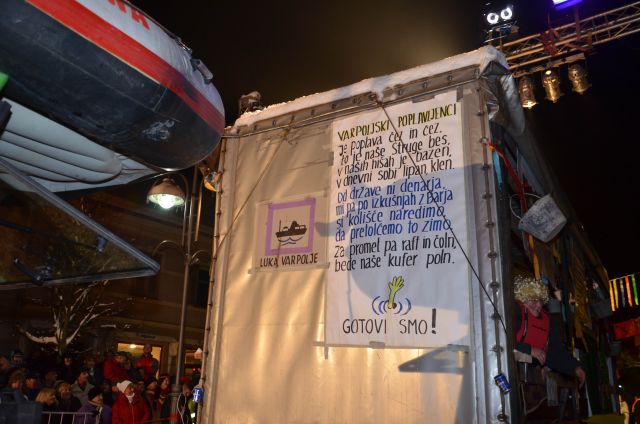 VARPOLJSKI POPLAVLJENCI
Je poplava čez in čez.
To je naše Struge bes.
V naših hišah je bazen,
v dnevni sobi lipan, klen.
Od države ni denarja,
mi pa po izkušnjah z Barja
si kolišče naredimo,
da prelolčemo to zimo.
Za promet pa raft in čoln,
bede naše kufer poln.
GOTOVI SMO!
LUKA VARPOLJE